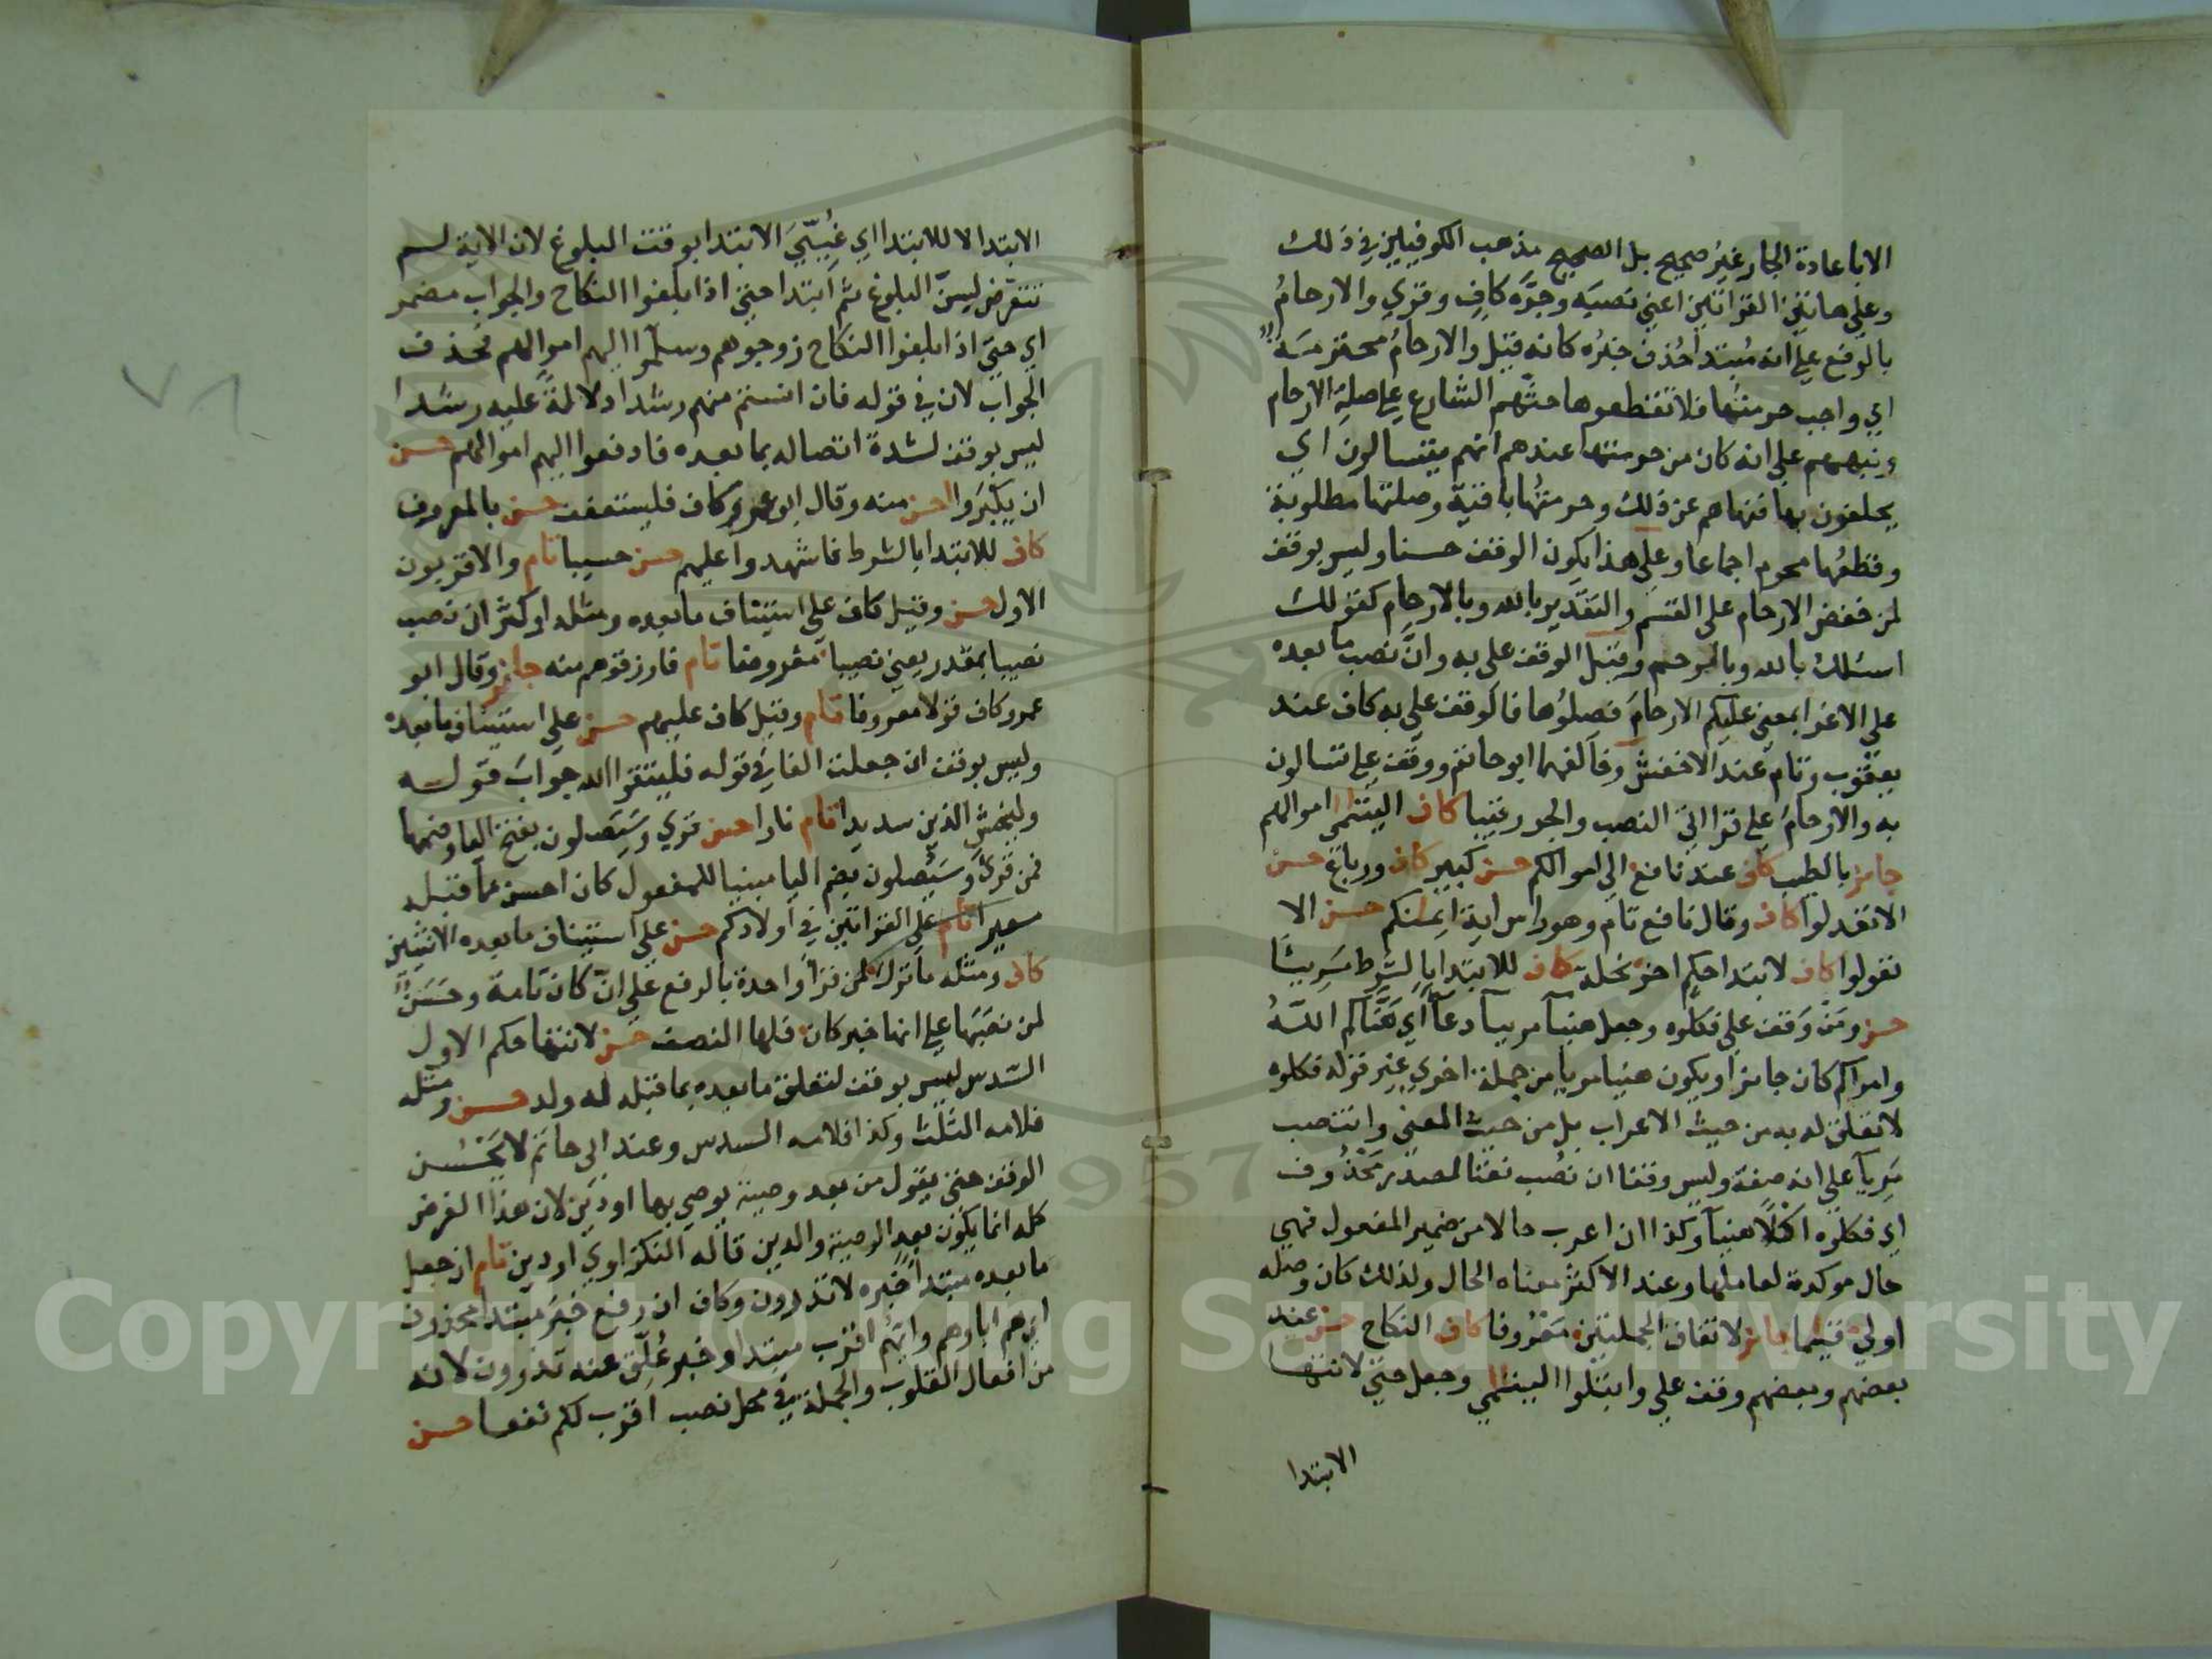 الا باعادة الجار غير صحيح بل الصحيح مذهب الكوفيين في ذلك
وعلى هاتين القراتين اعني نصبه وجره كاف وقري والارحام
بالرفع على انه مبتدا حذف خبره كانه قيل والارحام محترمة
اي واجب حرمتها فلا تقطعوها حثهم الشارع على صلة الارحام
ونبههم على انه كان من حرمتها عندهم انهم يتسالون اي
يحلفون بها فنهاهم عن ذلك وحرمتها باقية وصلتها مطلوبة
وقطعها محرم اجماعا وعلى هذا يكون الوقف حسنا وليس بوقف
لمن خفض الارحام على القسم والتقدير بالله وبالارحام كقولك
اسئلك بالله وبالرحم وقيل الوقف على به وان نصب ما بعده
على الاغرا بمعنى عليكم الارحام فصلوها فالوقف على به كاف عند
يعقوب وتام عند الاخفش وخالفهما ابو حاتم ووقف على تسالون
به والارحام على قراتي النصب والجر رقيبا كاف اليتمى اموالهم
جايز بالطيب كاف عند نافع الى اموالكم حسن كبيرا كاف ورباع حسن
الا تعدلوا كاف وقال نافع تام وهو راس اية ايمنكم حسن الا
تعولوا كاف لابتدا حكم اخر نحلة كاف للابتدا بالشرط مريئا
حسن ومن وقف على فكلوه وجعل هنيا مريا دعا اي هناكم الله
وامراكم كان جايزا ويكون هنيا مريا من جملة اخرى غير قوله فكلوه
لا تعلق له به من حيث الاعراب بل من حيث المعنى وانتصب
مريا على انه صفة وليس وقفا ان نصب نعتا لمصدر محذوف
اي فكلوه اكلا هنيا وكذا ان اعرب حالا من ضمير المفعول فهي
حال موكدة لعاملها وعند الاكثر معناه الحال ولذلك كان وصله
اولى قيما جايز لاتفاق الجملتين معروفا كاف النكاح حسن عند
بعضهم وبعضهم وقف على وابتلوا اليتمى وجعل حتى لانتها
الابتدا
الابتدا لا للابتدا اي غيي الابتدا بوقت البلوغ لان الاية لم
تتعرض لسن البلوغ ثم ابتدا حتى اذا بلغوا النكاح والجواب مضمر
اي حتى اذا بلغوا النكاح زوجوهم وسلموا اليهم اموالهم فحذف
الجواب لان في قوله فان انستم منهم رشدا دلالة عليه رشدا
ليس بوقف لشدة اتصاله بما بعده فادفعوا اليهم اموالهم حسن
ان يكبروا احسن منه وقال ابو عمرو كاف فليستعفف حسن بالمعروف
كاف للابتدا بالشرط فاشهدوا عليهم حسن حسيبا تام والاقربون
الاول حسن وقيل كاف على استيناف ما بعده ومثله او كثر ان نصب
نصيبا بمقدر يعني نصيبا مفروضا تام فارزقوهم منه جايز وقال ابو
عمرو كاف قولا معروفا تام وقيل كاف عليهم حسن على استيناف ما بعده
وليس بوقف ان جعلت الفا في قوله فليتقوا الله جواب قوله
وليخش الذين سديدا تام نارا حسن قري وسيصلون بفتح اليا وضمها
فمن قرى وسيصلون بضم اليا مبنيا للمفعول كان احسن مما قبله
سعيرا تام على القراتين في اولادكم حسن على استيناف ما بعده الانثيين
كاف ومثله ما ترك لمن قرا واحدة بالرفع على ان كان تامة وحسن
لمن نصبها على انها خبر كان فلها النصف حسن لانتها حكم الاول
السدس ليس بوقف لتعلق ما بعده بما قبله له ولد حسن ومثله
فلامه الثلث وكذا فلامه السدس وعند ابي حاتم لا يحسن
الوقف حتى يقول من بعد وصية يوصي بها او دين لان هذا الفرض
كله انما يكون بعد الوصية والدين قاله النكزاوي او دين تام ان جعل
ما بعده مبتدا خبره لا تدرون وكاف ان رفع خبر مبتدا محذوف
اي هم اباوهم وايهم اقرب مبتدا وخبر علق عنه تدرون لانه
من افعال القلوب والجملة في محل نصب اقرب لكم نفعا حسن
Copyright © King Saud University
1957